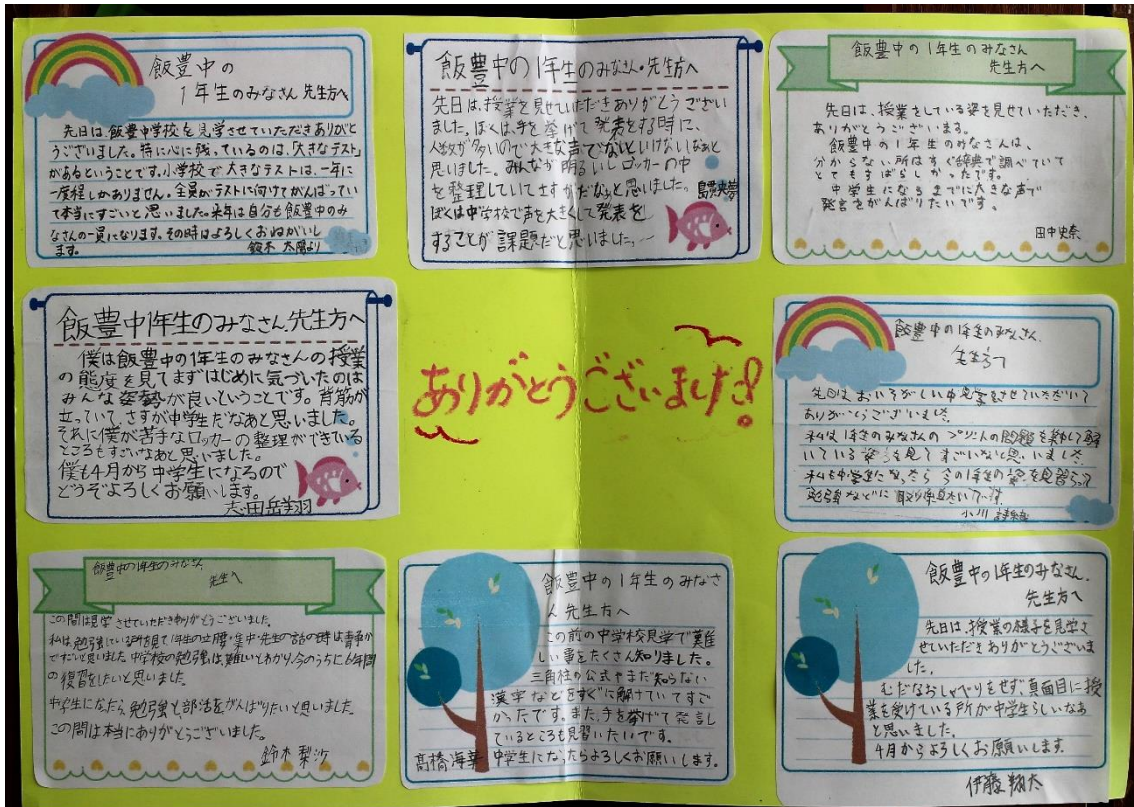 飯豊中の
1年生のみなさん 先生方へ
先日は、飯豊中学校を見学させていただきありがと
うございました。特に心に残っているのは、「大きなテスト」
があるということです。小学校で大きなテストは、一年に
一度程しかありません。全員がテストに向けてがんばってい
て本当にすごいと思いました。来年は自分も飯豊中のみ
なさんの一員になります。その時はよろしくおねがいし
ます。
鈴木 太陽より
飯豊中の1年生のみなさん・先生方へ
先日は、授業を見せていただきありがとうござい
ました。ぼくは、手を挙げて発表をする時に、
人数が多いので大きな声でないといけないなあと
思いました。みんなが明るいしロッカーの中
を整理していてさすがだなぁと思いました。
ぼくは中学校で声を大きくして発表を
することが課題だと思いました。
飯豊中の1年生のみなさん
先生方へ
先日は、授業をしている姿を見せていただき、
ありがとうございまる。
飯豊中の1年生のみなさんは、
分からない所はすぐ辞典で調べていて
とてもすばらしかったです。
中学生になるまでに大きな声で
発言をがんばりたいです。
田中史奈
飯豊中1年生のみなさん先生方へ
僕は飯豊中の1年生のみなさんの授業
の態度を見てまずはじめに気づいたのは
みんな姿勢が良いということです。背筋が
立っていてさすが中学生だなあと思いました。
それに僕が苦手なロッカーの整理ができている
ところもすごいなあと思いました。
僕も4月から中学生になるので
どうぞよろしくお願いします。
志田岳翔
ありがとうございました!
飯豊中の1年生のみなさん
先生方へ
先日は、おいそがしい中見学をさせていただいて
ありがとうございました。
私は1年生のみなさんの プリントの問題を集中して解
いている姿を見てすごいなと思いました。
私も中学生になったら 今の1年生の姿を見習って
勉強などに取り組みたいです。
小川
飯豊中の1年生のみなさん
先生へ
この間は見学させていただきありがとうございました。
私は、勉強している所を見て1年生の立腰・集中・先生の話の時は静か
ですごいと思いました。中学校の勉強は、難しいとわかり、今のうちに6年間
の復習をしたいと思いました。
中学生になったら、勉強と、部活をがんばりたいと思いました。
この間は本当にありがとうございました。
鈴木梨沙
飯豊中の1年生のみなさ
ん 先生方へ
この前の中学校見学で難
しい事をたくさん知りました。
三角柱の公式やまだ知らない
漢字などをすぐに解けていてすご
かったです。また、手を挙げて発言し
ているところも見習いたいです。
中学生になったらよろしくお願いします。
高橋海華
飯豊中の1年生のみなさん、
先生方へ
先日は、授業の様子を見学さ
せていただきありがとうございま
した。
むだなおしゃべりをせず、真面目に授
業を受けている所が中学生らしいなあ
と思いました。
4月からよろしくお願いします。
伊藤翔太